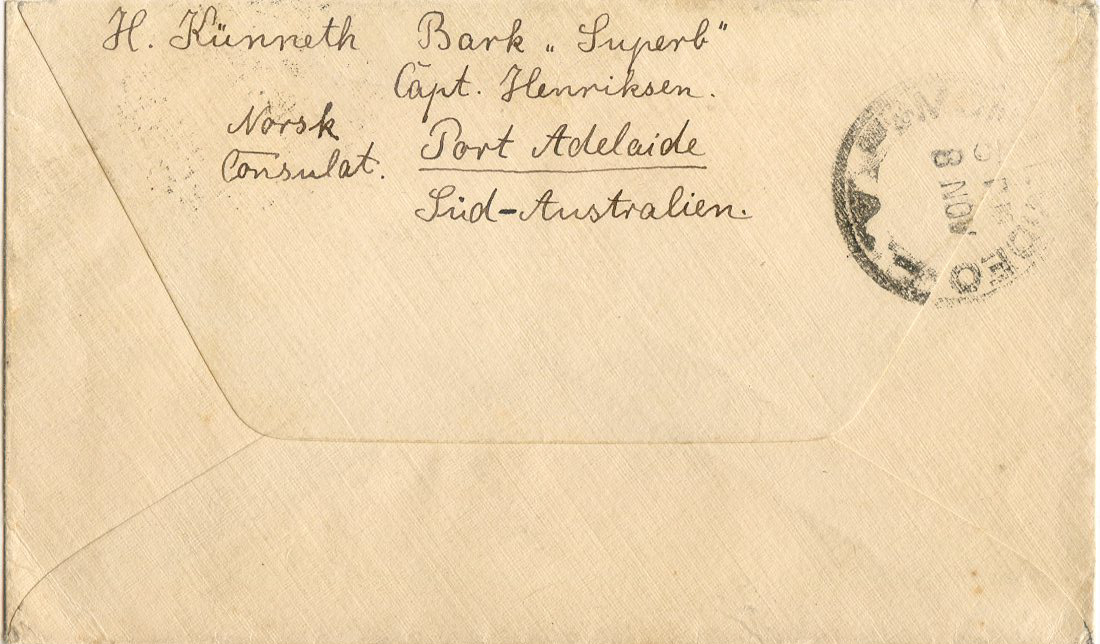 H. Künneth Bark „Superb“
Capt. Henriksen.
Norsk
Consulat.
Port Adelaide
Süd-Australien.
8 NOV